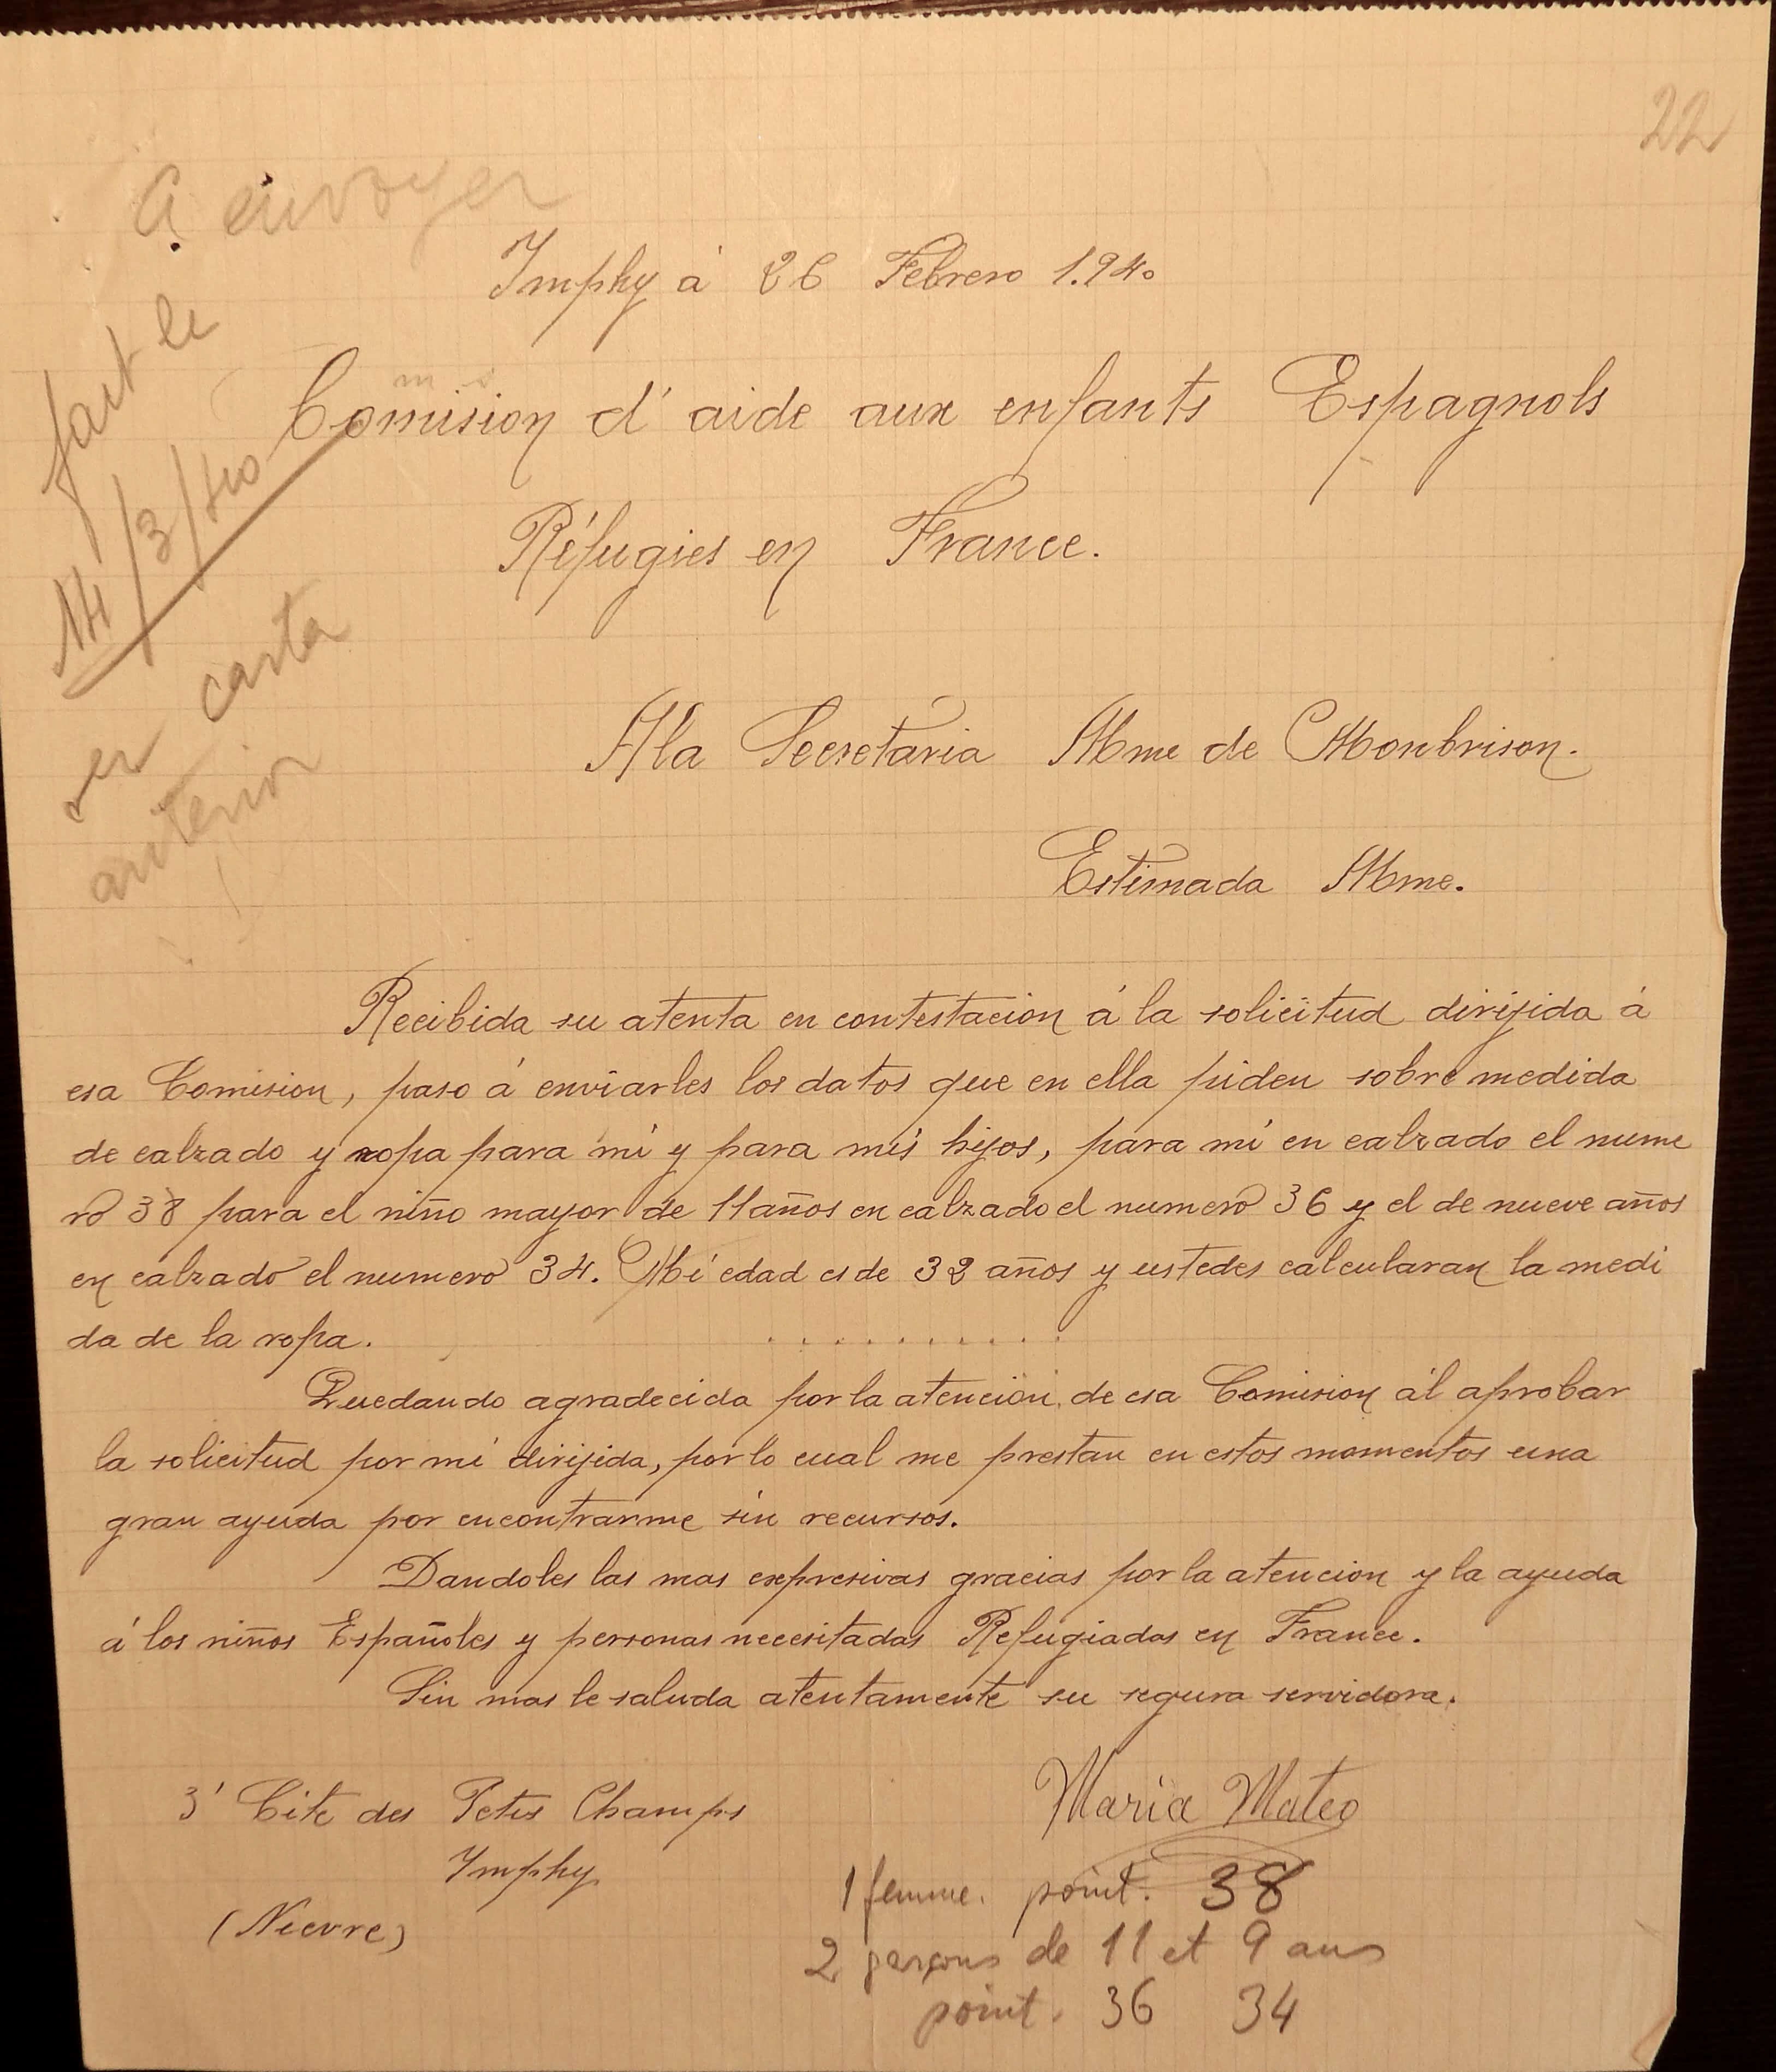 22
a envoyer
Imphy á 26 Febrero 1.940
fait le
14/3/40
m s
Comision d' aide aux enfants Espagnols
Réfugies en France.
ver carta
anterior
A la Secretaria Mme de Monbrison.
Estimada Mme.
Recibida su atenta en contestacion á la solicitud dirijida á
esa Comision, paso á enviarles los datos que en ella piden sobre medida
de calzado y ropa para mi y para mis hijos, para mi en calzado el nume
ro 38 para el niño mayor de 11 años en calzado el numero 36 y el de nueve años
en calzado el numero 34. Mi edad es de 32 años y ustedes calcularan la medi
da de la ropa. . . . . . . . . . . .
Quedando agradecida por la atencion, de esa Comision ál aprobar
la solicitud por mi dirijida, por lo cual me prestan en estos momentos una
gran ayuda por encontrarme sin recursos.
Dandoles las mas expresivas gracias por la atencion y la ayuda
á los niños Españoles y personas necesitadas Refugiadas en France.
Sin mas le saluda atentamente su segura servidora.
3' Cite des Petis Champs
Imphy
(Nievre)
Maria Mateo
1 femme. point. 38
2 garçons de 11 et 9 ans
point. 36 34